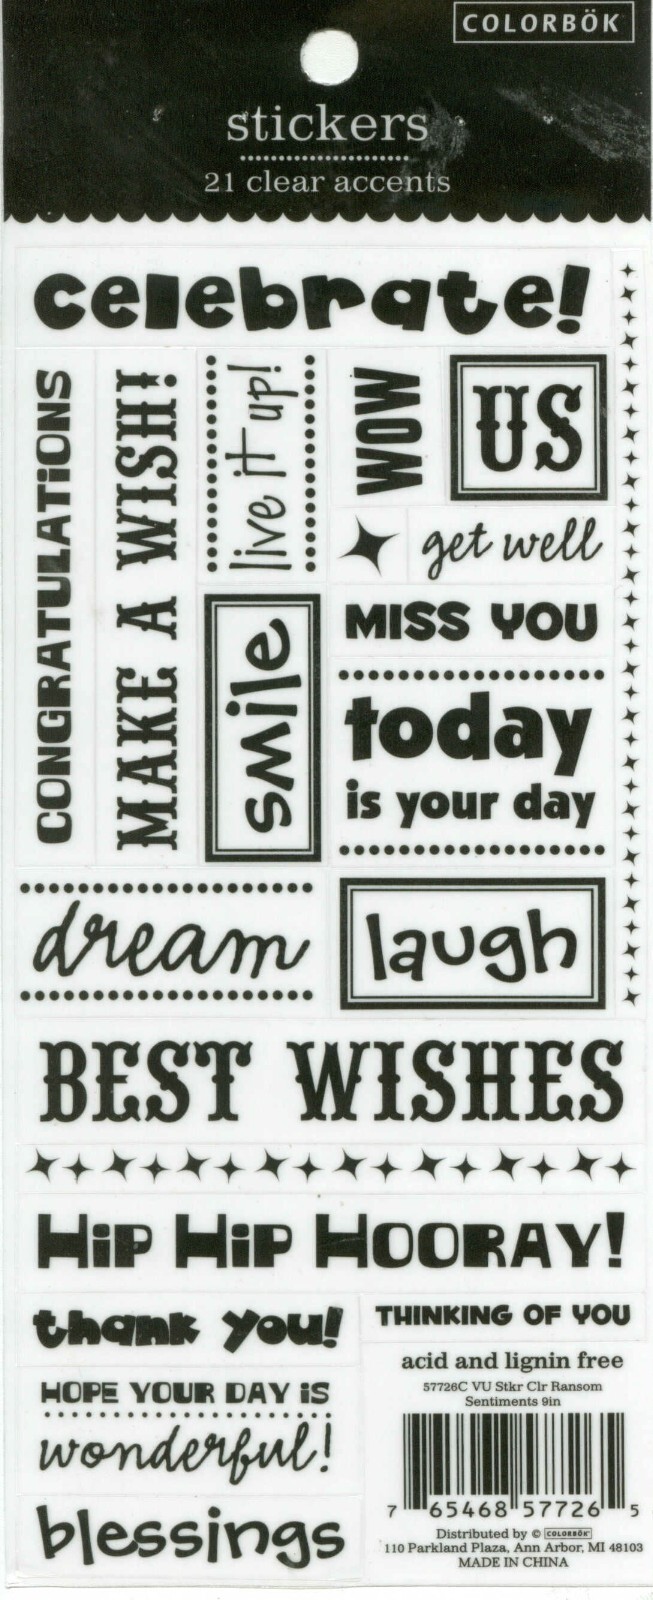 COLORBÖK
stickers
21 clear accents
celebrate!
CONGRATULATIONS
MAKE A WISH!
live it up!
WOW
US
get well
smile
MISS YOU
today
is your day
dream
laugh
BEST WISHES
HiP HiP HOORAY!
thank you!
THINKING OF YOU
HOPE YOUR DAY iS
wonderful!
blessings
acid and lignin free
57726C VU Stkr Clr Ransom
Sentiments 9in
7 65468 57726 5
Distributed by © COLORBÖK
110 Parkland Plaza, Ann Arbor, MI 48103
MADE IN CHINA